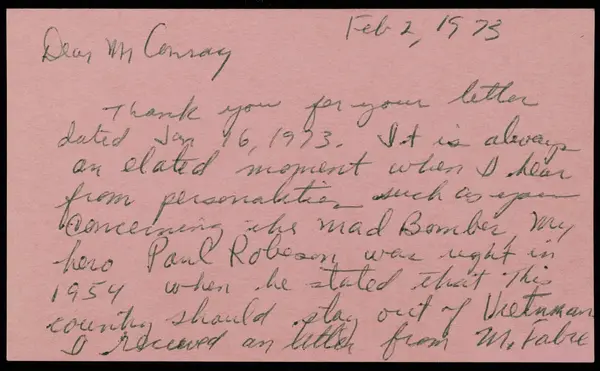 Feb 2, 1973
Dear Mr Conray
Thank you for your letter
dated Jan 16, 1973. It is always
an elated moment when I hear
from personalities such as you
concerning the mad Bomber, my
hero Paul Robeson was right in
1954 when he stated that this
country should stay out of Vietnam
I received an letter from M. Fabre